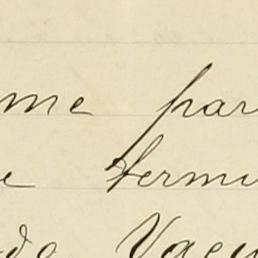 me par
e termi
do Vacu